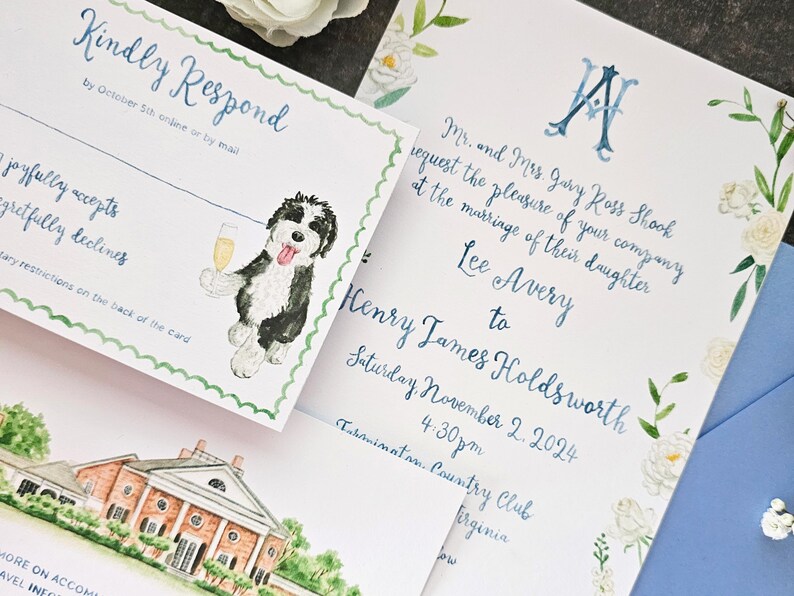 Kindly Respond
by October 5th online or by mail
joyfully accepts
regretfully declines
restrictions on the back of the card
HA
Mr. and Mrs. Gary Ross Shook
request the pleasure of your company
at the marriage of their daughter
Lee Avery
to
Henry James Holdsworth
Saturday, November 2, 2024
4:30pm
Farmington Country Club
Virginia
MORE ON ACCOM